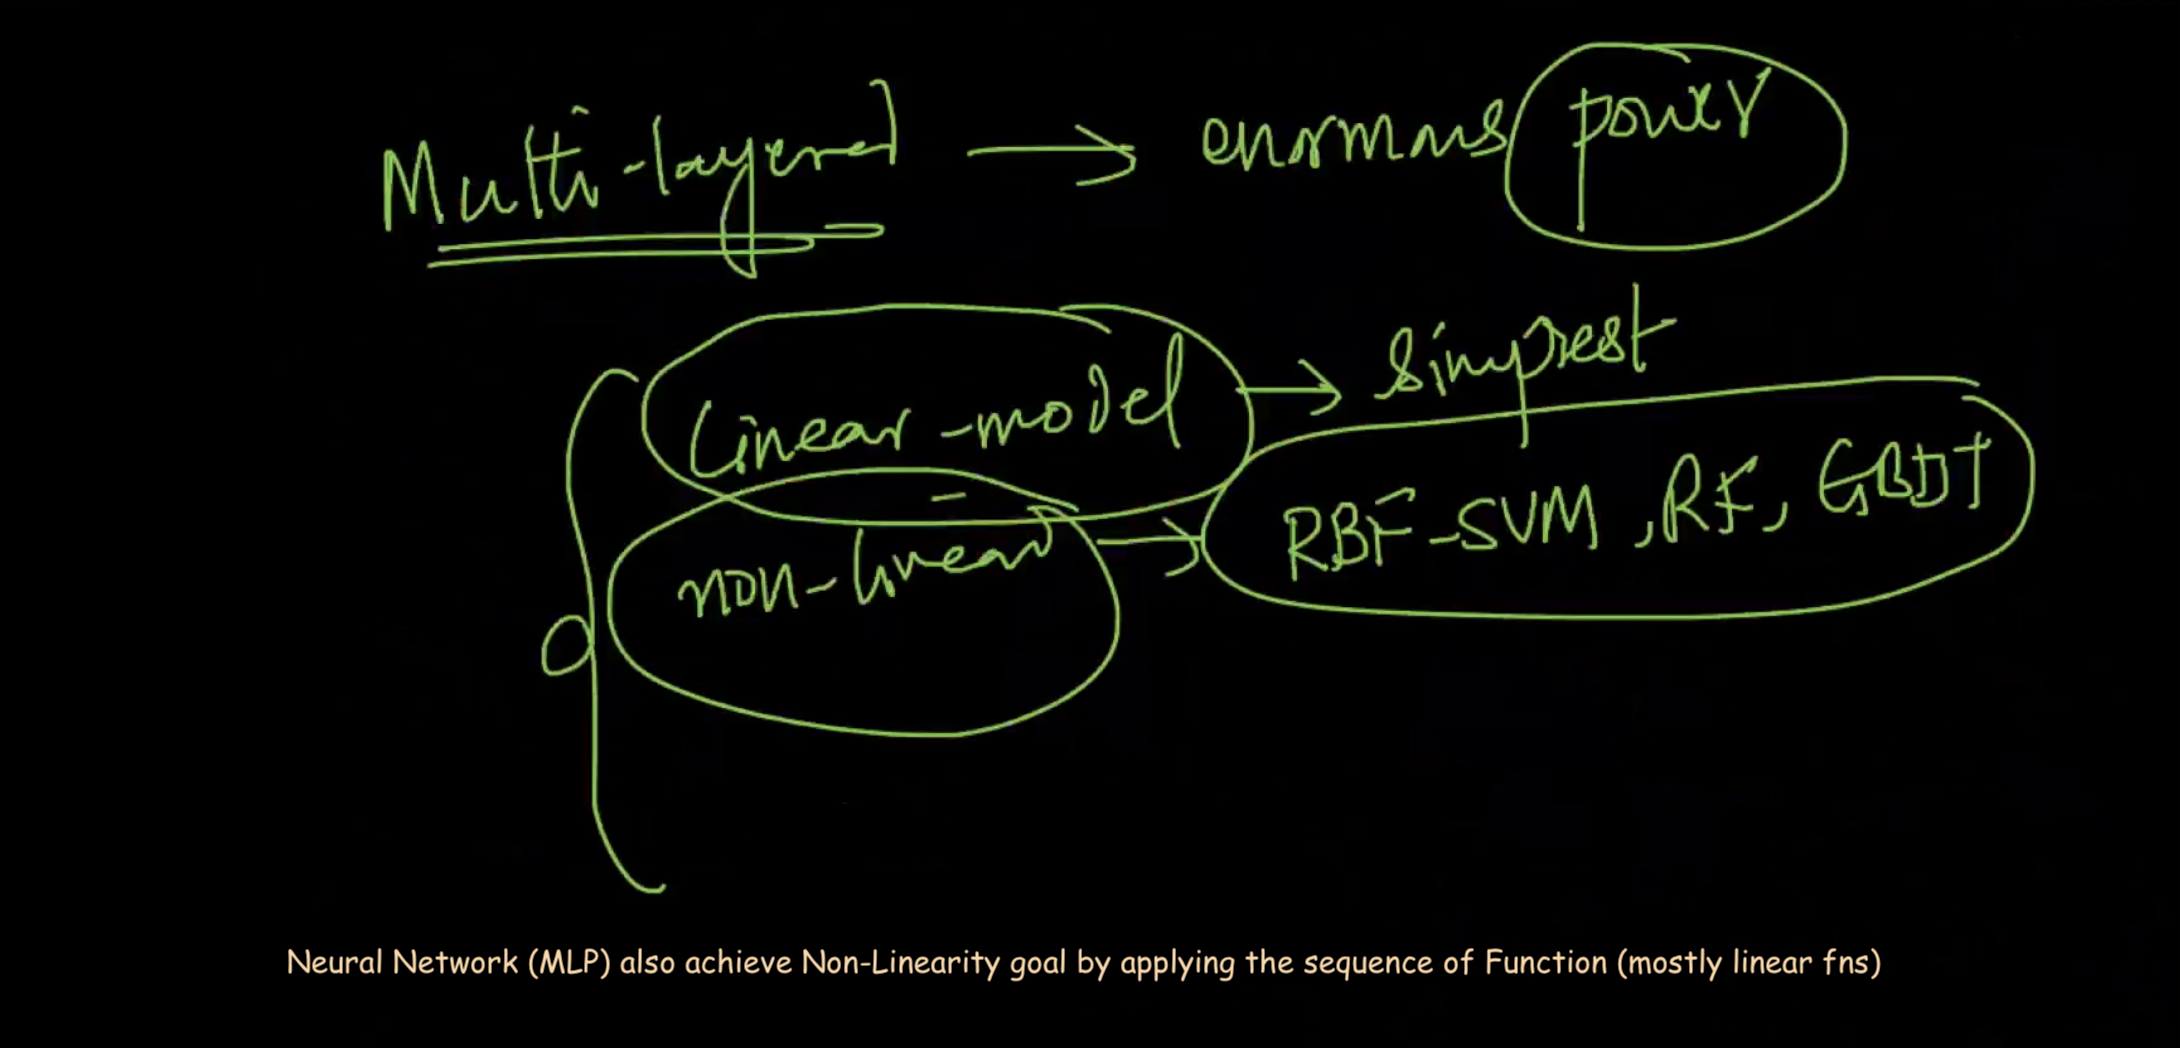 Multi-layered → enormous power
Linear-model → simplest
non-linear → RBF-SVM, RF, GBDT
Neural Network (MLP) also achieve Non-Linearity goal by applying the sequence of Function (mostly linear fns)